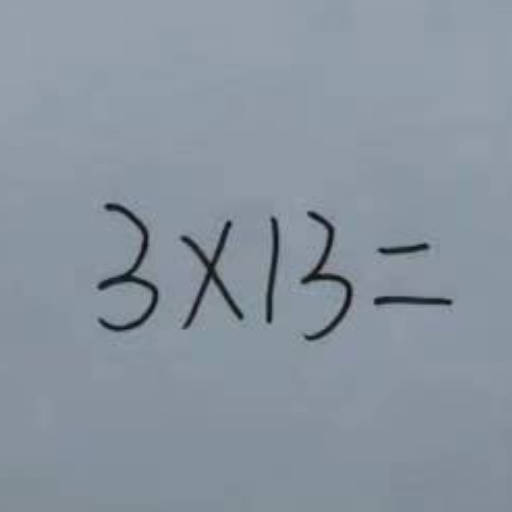 3×13=